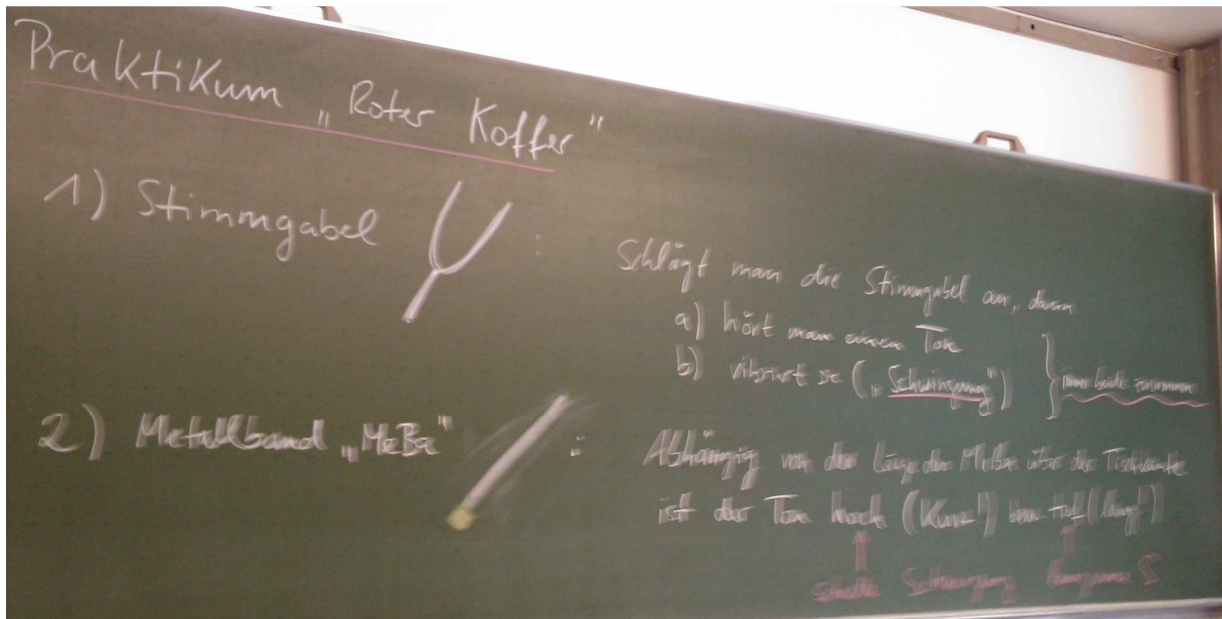 Praktikum „Roter Koffer"
1) Stimmgabel :
Schlägt man die Stimmgabel an, dann
a) hört man einen Ton
b) vibriert sie („Schwingung")
immer beide zusammen
2) Metallband „MeBa" :
Abhängig von der Länge des MeBa über der Tischkante
ist der Ton hoch (kurz!) bzw. tief (lang!)
schnelle Schwingung langsame S